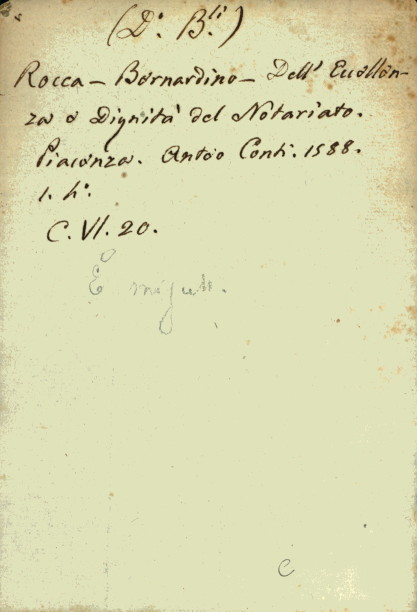 (D.º B.li)
Rocca - Bernardino - Dell' Eccellen-
za e Dignità del Notariato.
Piacenza. Anteo Conti. 1588.
1. h.º
C. VI. 20.
È
e